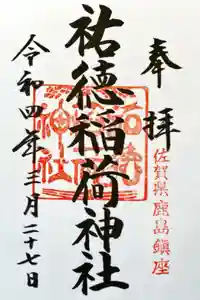 奉拝
佐賀県鹿島鎮座
祐徳稲荷神社
令和四年三月二十七日